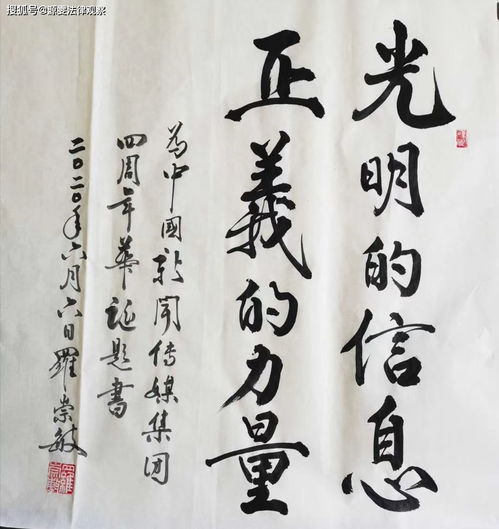 搜狐号@源叟法律观察
光明的信息
正義的力量
为中國新闻传媒集团
四周年華诞题书
二〇二〇年六月六日羅崇敏